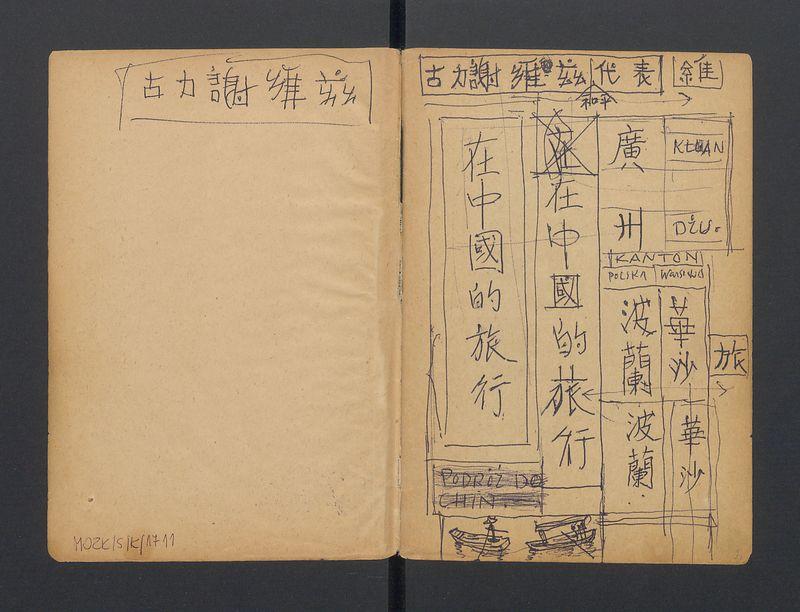 古力謝維茲
MOZK/S/K/1711
古力謝維茲代表 維
和平
在中國的旅行
在中國的旅行
廣州
KUAN
DŻU.
KANTON
POLSKA WARSZAWA
波蘭 華沙
旅
波蘭 華沙
PODRÓŻ DO
CHIN.